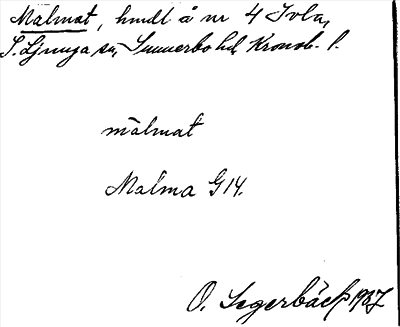 Malmat, hmdl å nr 4 Tvla,
S. Ljunga sn, Sunnerbo hd, Kronob. l.
mälmat
Malma G 14.
O. Segerbäck 1937